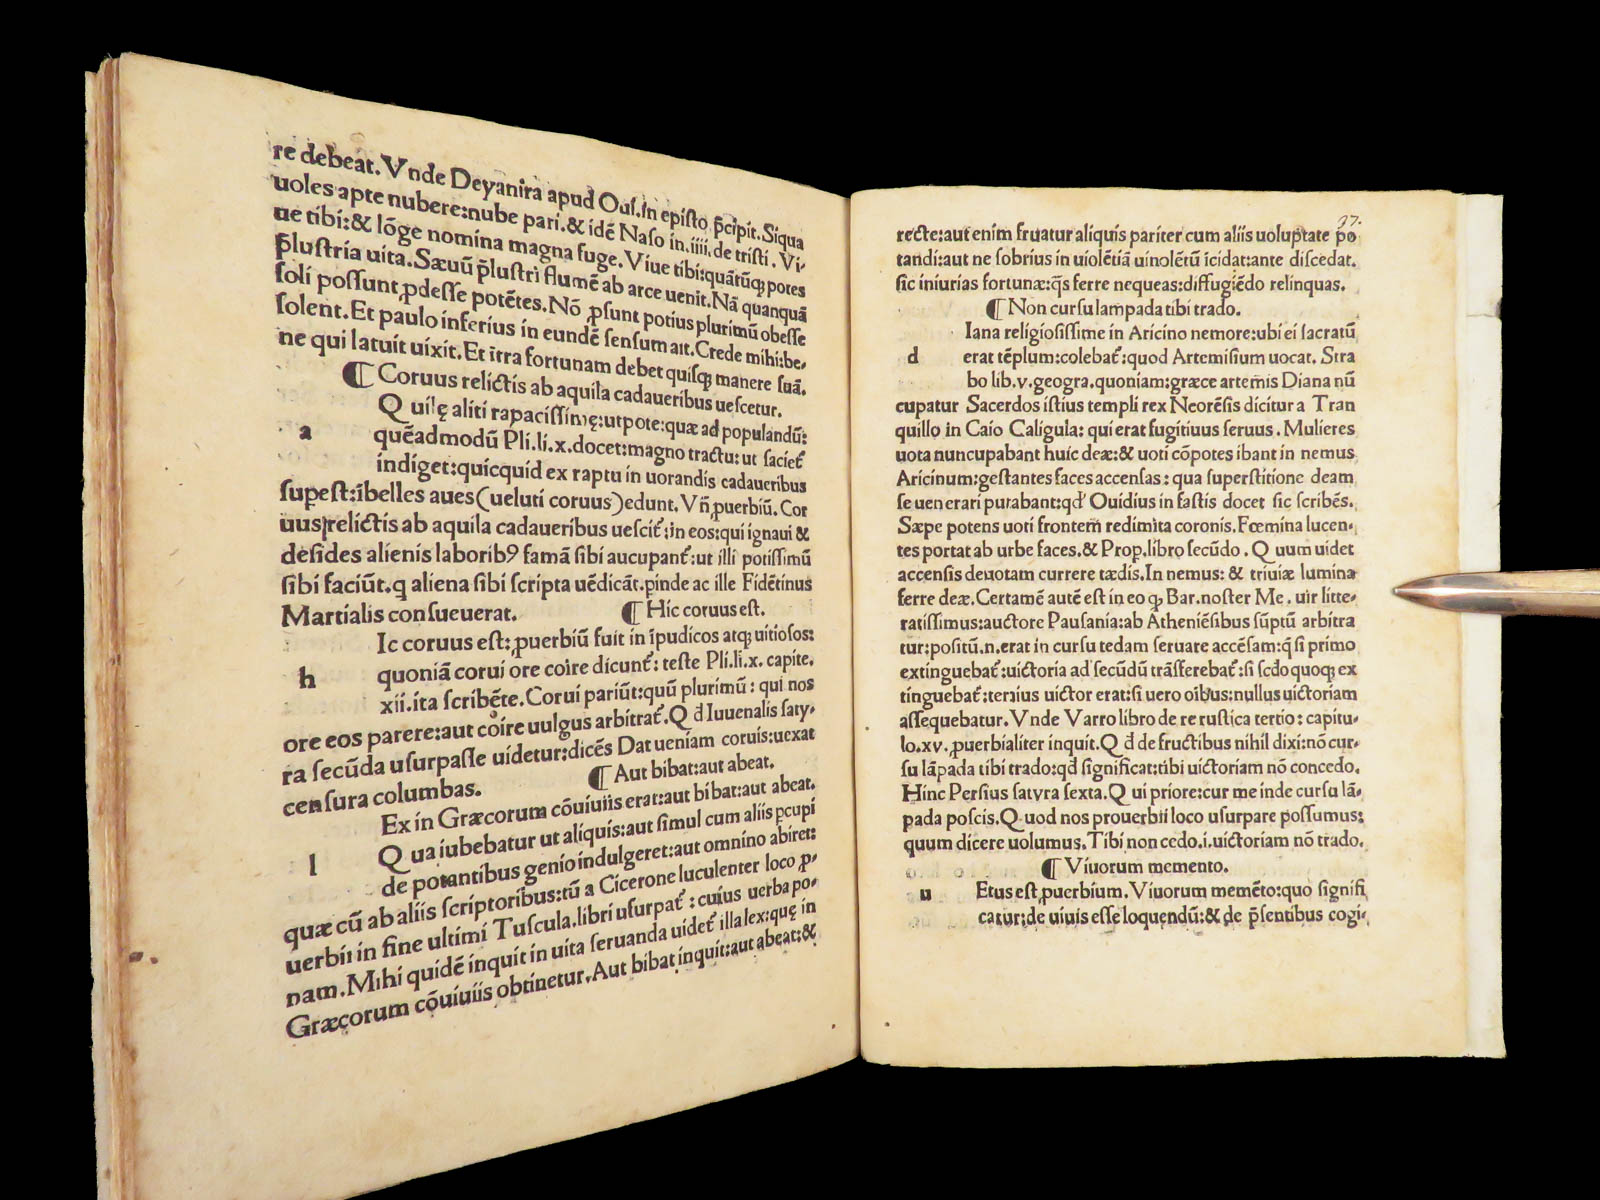 re debeat. Vnde Deyanira apud Oui. in episto p̄cipit. Siqua
uoles apte nubere:nube pari. & idē Naso in. iiii. de tristi. Vi-
ue tibi:& lōge nomina magna fuge. Viue tibi:quātūq; potes
p̄lustria uita. Sæuū p̄lustri flumē ab arce uenit. Nā quanquā
soli possunt ꝓdesse potētes. Nō ꝓsunt potius plurimū obesse
solent. Et paulo inferius in eundē sensum ait. Crede mihi:be-
ne qui latuit uixit. Et ītra fortunam debet quisq; manere suā.
¶ Coruus relictis ab aquila cadaueribus uescetur.
a
Q uilę aliti rapacissimę:utpote:quæ ad populandū:
quēadmodū Pli. li. x. docet:magno tractu: ut faciet᷑
indiget:quicquid ex raptu in uorandis cadaueribus
supest:ībelles aues (ueluti coruus) edunt. Vn̄ ꝓuerbiū. Cor
uus relictis ab aquila cadaueribus uescit᷑:in eos:qui ignaui &
desides alienis laborib9 famā sibi aucupant᷑:ut illi potissimū
sibi faciūt. q aliena sibi scripta uēdicāt. pinde ac ille Fidētinus
Martialis consueuerat. ¶ Hic coruus est.
h
Ic coruus est:ꝓuerbiū fuit in īpudicos atq; uitiosos:
quoniā corui ore coire dicunt᷑: teste Pli. li. x. capite.
xii. ita scribēte. Corui pariūt:quū plurimū: qui nos
ore eos parere:aut coire uulgus arbitrat᷑. Q d̄ Iuuenalis saty-
ra secūda usurpasse uidetur:dicēs Dat ueniam coruis:uexat
censura columbas. ¶ Aut bibat:aut abeat.
l
Ex in Græcorum cōuiuiis erat:aut bibat:aut abeat.
Q ua iubebatur ut aliquis:aut simul cum aliis pcupi
de potantibus genio indulgeret:aut omnino abiret:
quæ cū ab aliis scriptoribus:tū a Cicerone luculenter loco ꝓ-
uerbii in fine ultimi Tuscula. libri usurpat᷑ : cuius uerba po-
nam. Mihi quidē inquit in uita seruanda uidet᷑ illa lex:quę in
Græcorum cōuiuiis obtinetur. Aut bibat inquit:aut abeat:&
37.
recte:aut enim fruatur aliquis pariter cum aliis uoluptate po
tandi:aut ne sobrius in uiolētiā uinolētū īcidat:ante discedat.
sic iniurias fortunæ:q̄s ferre nequeas:diffugiēdo relinquas.
¶ Non cursu lampada tibi trado.
d
Iana religiosissime in Aricino nemore:ubi ei sacratū
erat tēplum:colebat᷑:quod Artemisium uocat. Stra
bo lib. v. geogra. quoniam:græce artemis Diana nū
cupatur Sacerdos istius templi rex Neorēsis dicitur a Tran
quillo in Caio Caligula: qui erat fugitiuus seruus. Mulieres
uota nuncupabant huic deæ:& uoti cōpotes ibant in nemus
Aricinum:gestantes faces accensas : qua superstitione deam
se uenerari putabant:qd' Ouidius in fastis docet sic scribēs.
Sæpe potens uoti frontem redimita coronis. Fœmina lucen-
tes portat ab urbe faces. & Prop. libro secūdo. Q uum uidet
accensis deuotam currere tædis. In nemus: & triuiæ lumina
ferre deæ. Certamē autē est in eo q; Bar. noster Me. uir litte-
ratissimus:auctore Pausania:ab Atheniēsibus sūptū arbitra
tur:positū. n. erat in cursu tedam seruare accēsam:q̄ si primo
extinguebat᷑:uictoria ad secūdū trāsferebat᷑:si scdo quoq; ex
tinguebat᷑:tertius uictor erat:si uero oībus:nullus uictoriam
assequebatur. Vnde Varro libro de re rustica tertio: capitu-
lo. xv. ꝓuerbialiter inquit. Q d̄ de fructibus nihil dixi:nō cur-
su lāpada tibi trado:qd̄ significat:tibi uictoriam nō concedo.
Hinc Persius satyra sexta. Q ui priore:cur me inde cursu lā-
pada poscis. Q uod nos prouerbii loco usurpare possumus:
quum dicere uolumus. Tibi non cedo. i. uictoriam nō trado.
¶ Viuorum memento.
u
Etus est ꝓuerbium. Viuorum memēto:quo signifi
catur:de uiuis esse loquendū:& de p̄sentibus cogi-